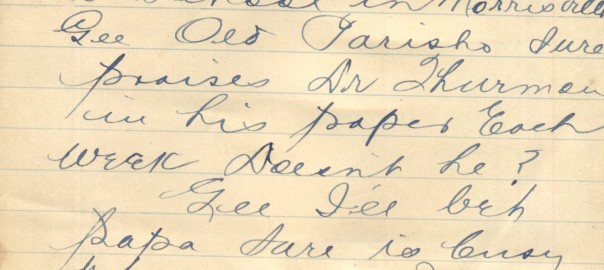 in Morrisville
Gee Old Parisho Sure
praises Dr Thurman
in his paper Each
week Doesn't he?
Gee I'll bet
papa sure is busy